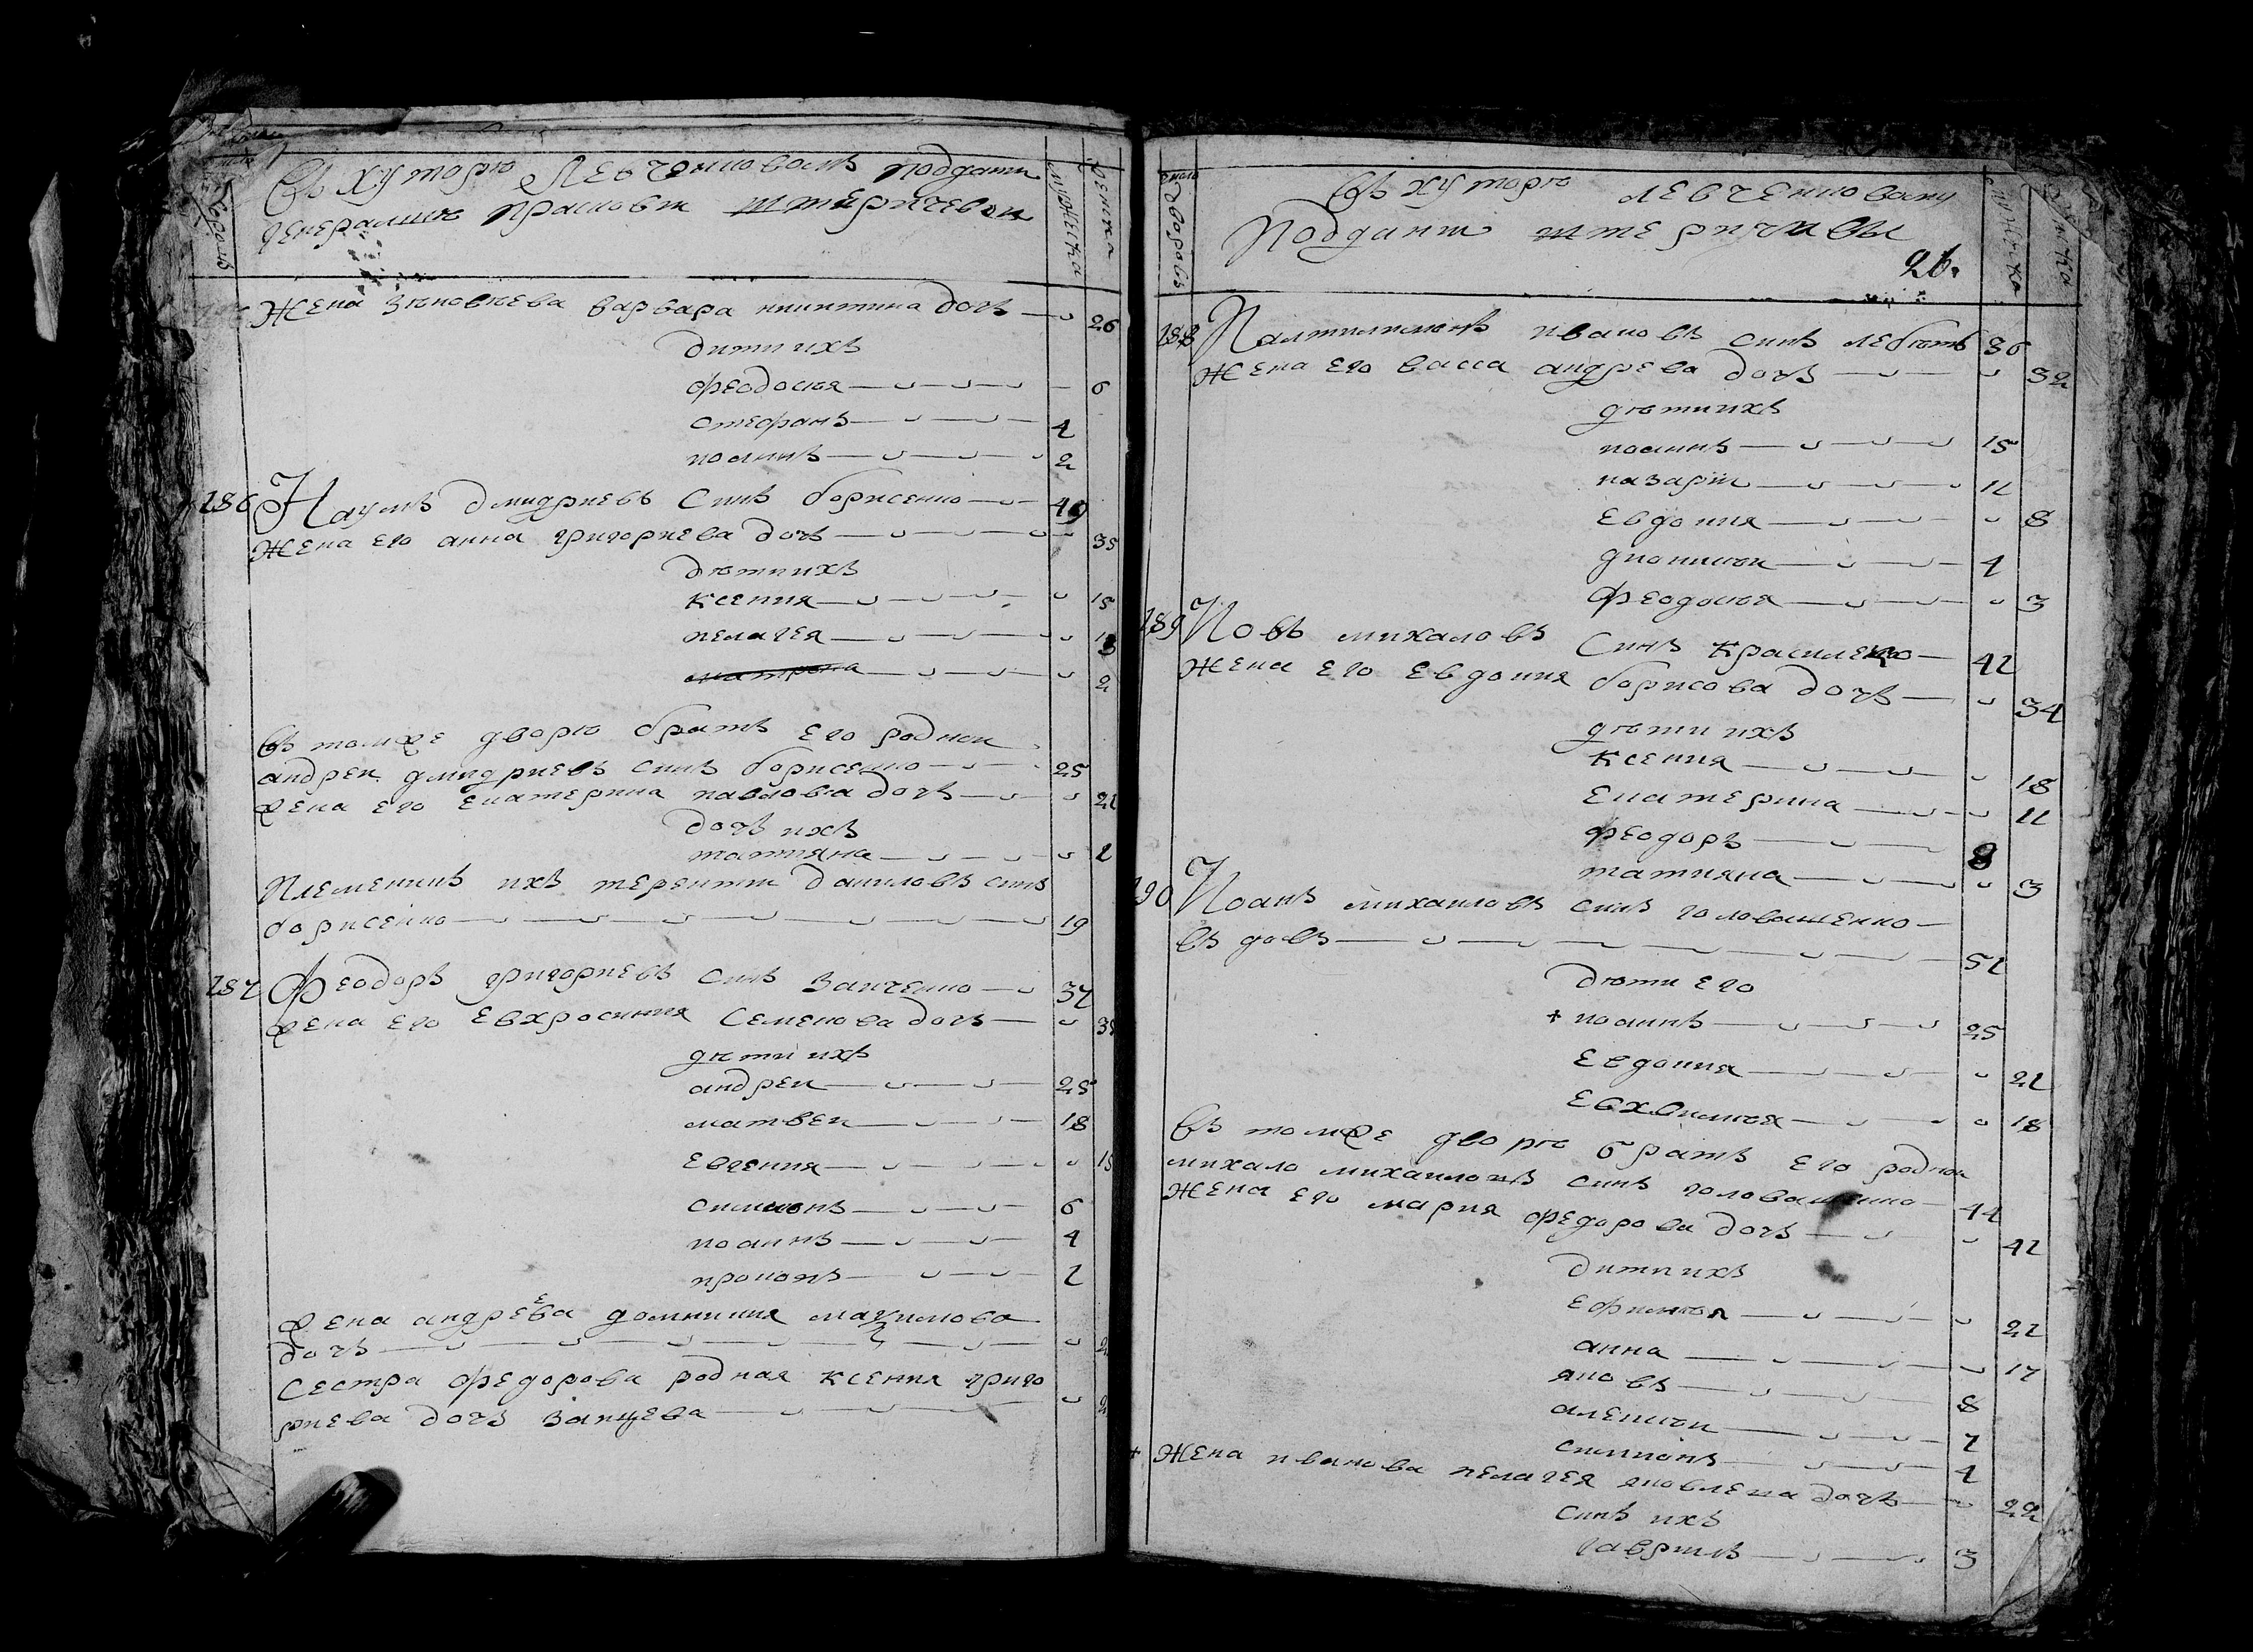 Въ хуторѣ Левченковомъ подданн
генералшѣ прасковш штеричевои
мужеска
женска
Жена зѣновѣева варвара никитина дочь 26
дити ихъ
феодосѣя 6
стефанъ 4
иоаннъ 2
186 Наумъ дмидриевъ синъ борисенко 49
Жена его анна григориева дочъ 35
дѣти ихъ
ксения 15
пелагея 13
матрона 2
въ томже дворѣ братъ его роднеи
андреи дмидриевъ синъ борисенко 25
жена его екатерина павлова дочъ 21
дочъ ихъ
татияна 1
Племенникъ ихъ терентии даниловъ синъ
борисенко 19
187 Феодоръ григориевъ синъ заиченко 37
жена его евхросиния семенова дочъ 35
дѣти ихъ
андреи 25
матвеи 18
евгения 15
симионъ 6
иоаннъ 4
прокопъ 1
жена андреева домникия максимова
дочъ
Сестра федорова родная ксения григо
риева дочъ заицева
число дворовъ
Въ хуторѣ левченковому
Подданш штеричивы
26.
мужеска
188 Палтилимонъ ивановъ синъ лебѣть 36
Жена его васса андрева дочъ 32
дѣти ихъ
иоаннъ 15
назарии 11
евдокия 8
дионисѣи 4
феодосѣя 3
189 Иовъ михаловъ синъ красилеко 41
жена его евдокия борисова дочъ 34
дѣти ихъ
ксения 18
екатерина 11
феодоръ 8
татияна 3
190 Иоанъ михаиловъ синъ головашенко
въдовъ 51
дѣти его
+ иоаннъ 25
евдокия 21
евхвимѣя 18
въ томже дворѣ братъ его роднои
михало михаиловъ синъ головашенко 44
жена его мария федорова дочъ 41
дити ихъ
ефимѣя 21
анна 17
яковъ 8
алексѣи 7
симионъ 4
+ Жена иванова пелагея яковлева дочъ 22
синъ ихъ
гаврилъ 3